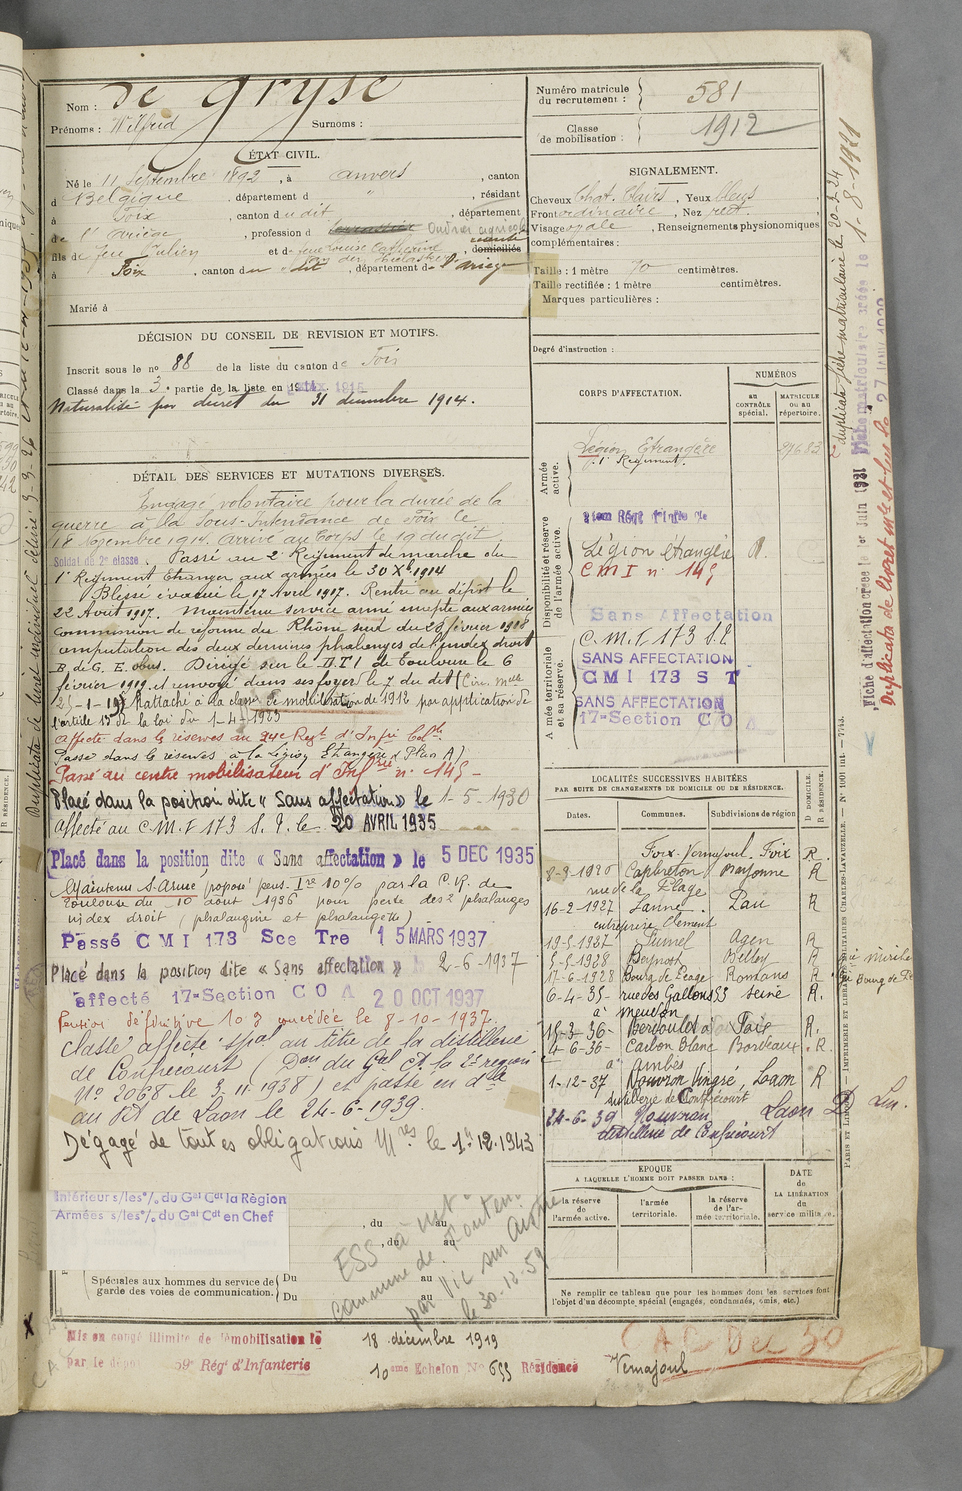 Nom : de gryse
Prénoms : Wilfrid Surnoms :
Numéro matricule du recrutement : 581
Classe de mobilisation : 1912
ÉTAT CIVIL.
Né le 11 Septembre 1892, à Anvers, canton
d Belgique, département d ", résidant
à Foix, canton du dit, département
de l'Ariège, profession d Ouvrier agricole
fils de feu Julien et de feue Louise Catherine
domiciliés
à Foix, canton du dit, département de l'Ariège
Marié à
SIGNALEMENT.
Cheveux Chat. Clairs, Yeux bleus
Front ordinaire, Nez rect.
Visage ovale, Renseignements physionomiques
complémentaires :
Taille : 1 mètre 70 centimètres.
Taille rectifiée : 1 mètre centimètres.
Marques particulières :
Degré d'instruction :
DÉCISION DU CONSEIL DE REVISION ET MOTIFS.
Inscrit sous le no 88 de la liste du canton de Foix
Classé dans la 3e partie de la liste en 1915
Naturalisé par décret du 31 décembre 1914.
DÉTAIL DES SERVICES ET MUTATIONS DIVERSES.
Engagé volontaire pour la durée de la
guerre à la Sous-Intendance de Foix le
18 septembre 1914. Arrivé au Corps le 19 dudit.
Soldat de 2e classe. Passé au 2e Régiment de marche du
1er Régiment Etranger aux armées le 30 Xbre 1914
Blessé évacué le 17 Avril 1917. Rentré au dépôt le
22 Août 1917. Maintenu service armé inapte aux armées
Commission de réforme du Rhône sud du 28 février 1918
amputation des deux dernières phalanges de l'index droit
B. de G. E. obus. Dirigé sur le D.T.I de Toulouse le 6
février 1919 et renvoyé dans ses foyers le 7 du dit (Circ. Mlle
25-1-19) Rattaché à la classe de mobilisation de 1912 par application de
l'article 15 de la loi du 1-4-1923
Affecté dans les réserves au 24e Regt d'Infie Colle
Passé dans les réserves à la Légion Etrangère (Plan A)
Passé au centre mobilisateur d'Infrie n° 145 -
Placé dans la position dite « Sans affectation » le 1-5-1930
Affecté au C.M.I 173 S.T. le 20 AVRIL 1935
Placé dans la position dite « Sans affectation » le 5 DEC 1935
Maintenu S. Armé, proposé pens. Ire 10% par la C.R. de
Toulouse du 10 août 1936 pour perte des 2 phalanges
index droit (phalangine et phalangette)
Passé CMI 173 Sce Tre 15 MARS 1937
Placé dans la position dite « Sans affectation » 2-6-1937
affecté 17e Section C O A 20 OCT 1937
Pension définitive 10% concédée le 8-10-1937.
Classé affecté spal au titre de la distillerie
de Confrécourt (Don du Gal Ct la 2e région
No 2068 le 3-11-1938) et passé en dlle
au Rt de Laon le 24-6-1939.
Dégagé de toutes obligations Mres le 1er.12.1943
CORPS D'AFFECTATION.
NUMÉROS
AU CONTRÔLE spécial.
MATRICULE OU AU répertoire.
Armée active.
Légion Etrangère
1er Régiment.
Disponibilité et réserve de l'armée active.
Légion étrangère
C M I n° 145
Sans Affectation
C.M.I 173 S.T.
Armée territoriale et sa réserve.
SANS AFFECTATION
CMI 173 S T
SANS AFFECTATION
17e Section C O A
LOCALITÉS SUCCESSIVES HABITÉES
PAR SUITE DE CHANGEMENTS DE DOMICILE OU DE RÉSIDENCE.
Dates. Communes. Subdivisions de région
D DOMICILE.
R RÉSIDENCE.
Foix-Vernajoul. Foix R.
8-3-1920 Capbreton Bayonne R
rue de la Plage
16-2-1927 Lanne. Pau R
entreprise Clement
19-5-1927 Fumel Agen R
5-5-1928 Belley R
17-6-1928 Bourg de Péage Romans R
6-4-35- rue des Gallons 53 Seine R.
à Meudon
Foix R.
4-6-36- Carbon Blanc Bordeaux. R.
à Ambès
1-12-37 Nouvron Vingré, Laon R
distillerie de Confrécourt
24-6-39 Nouvron Laon D
distillerie de Confrécourt
EPOQUE
A LAQUELLE L'HOMME DOIT PASSER DANS :
la réserve de l'armée active.
l'armée territoriale.
la réserve de l'armée territoriale.
DATE DE LA LIBÉRATION du service militaire.
Ne remplir ce tableau que pour les hommes dont les services font
l'objet d'un décompte spécial (engagés, condamnés, omis, etc.)
Intérieur s/les o/. du Gal Cdt la Région
Armées s/les o/. du Gal Cdt en Chef
, du au
, du au
Spéciales aux hommes du service de garde des voies de communication.
Du au
Du au
ESS à
commune de
par Vic sur Aisne
le 30-12-59
Mis en congé illimité de démobilisation le 18 décembre 1919
par le dépôt 59e Régt d'Infanterie 10eme Echelon No 699 Résidence Vernajoul
duplicata fiche matriculaire le 20-2-24
1-8-1921
Fiche d'affectation créée le 1er Juin 1931
Duplicata de livret
Duplicata de livret individuel délivré
PARIS ET LIMOGES. — IMPRIMERIE ET LIBRAIRIE MILITAIRES CHARLES-LAVAUZELLE. — No 1001 int.